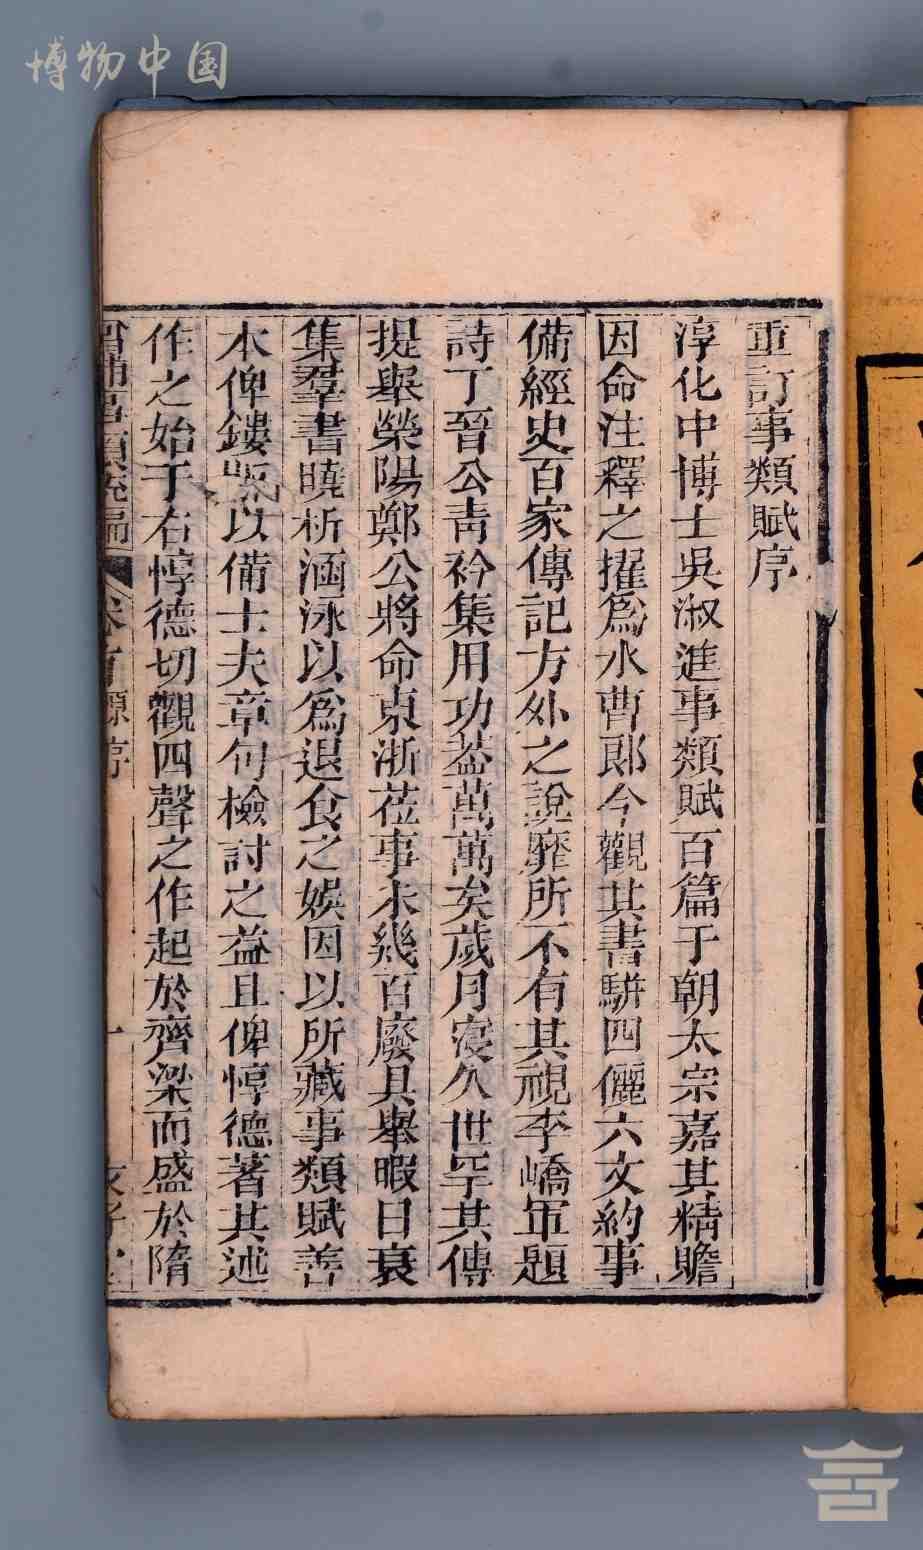 博物中国
重訂事類賦序
淳化中博士吳淑進事類賦百篇于朝太宗嘉其精贍
因命注釋之擢爲水曹郎今觀其書駢四儷六文約事
備經史百家傳記方外之說靡所不有其視李嶠單題
詩丁晉公青衿集用功蓋萬萬矣歲月寖久世罕其傳
提舉榮陽鄭公將命東浙莅事未幾百廢具舉暇日裒
集羣書曉析涵泳以爲退食之娛因以所藏事類賦善
本俾鏤版以備士夫章句檢討之益且俾惇德著其述
作之始于右惇德切觀四聲之作起於齊梁而盛於隋
增補事類統編
卷首 源序
一